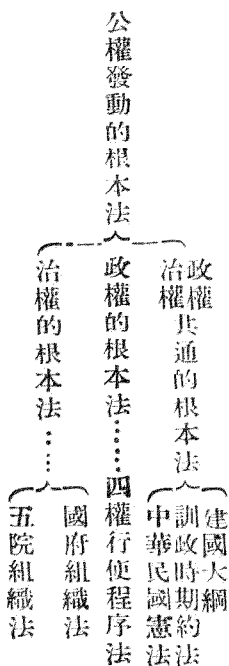 公權發動的根本法
政權
治權
共通的根本法
建國大綱
訓政時期約法
中華民國憲法
政權的根本法……四權行使程序法
治權的根本法……
國府組織法
五院組織法